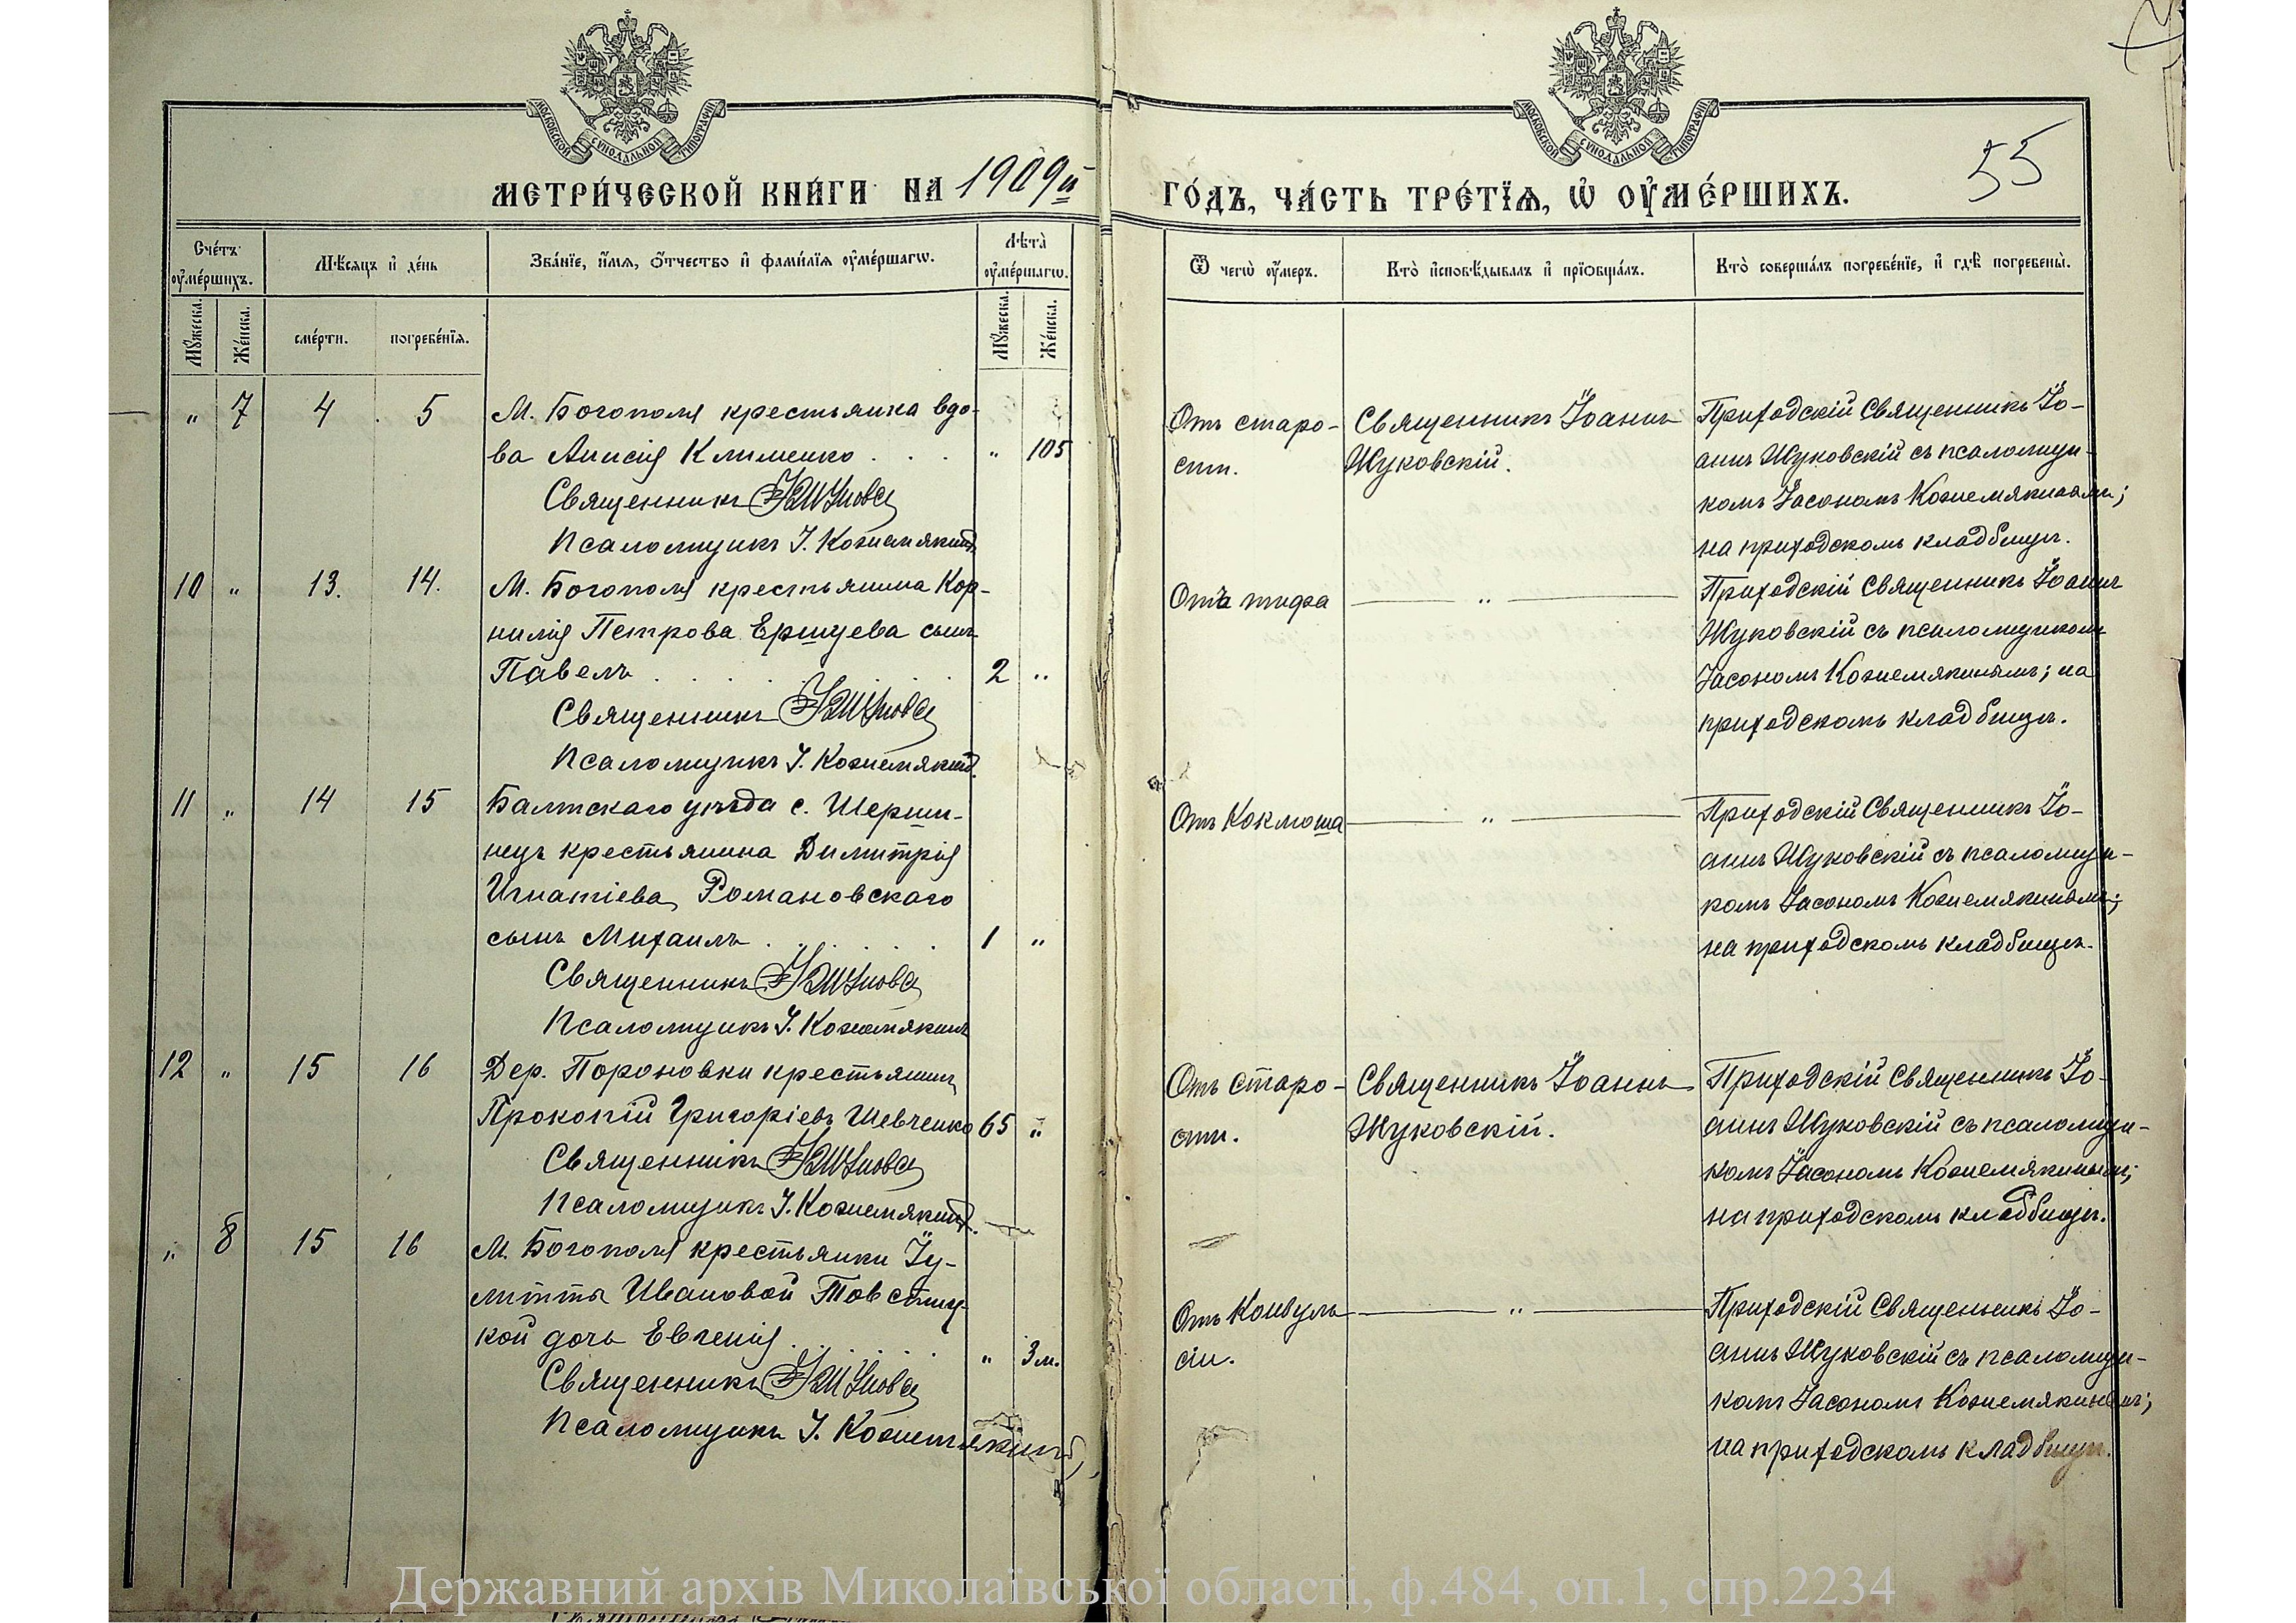 МОСКОВСКОЙ СѴНОДАЛЬНОЙ ТИПОГРАФІИ
МОСКОВСКОЙ СѴНОДАЛЬНОЙ ТИПОГРАФІИ
МЕТРИ́ЧЕСКОЙ КНИ́ГИ НА 1909й
ГО́ДЪ, ЧА́СТЬ ТРЕ́ТЇѦ, Ѡ҆ ОУ҆МЕ́РШИХЪ.
55
Сче́тъ оу҆ме́ршихъ.
Мѣ́сяцъ и҆ де́нь
Зва́нїе, и҆́мѧ, о҆́тчество и҆ фами́лїѧ оу҆ме́ршагѡ.
Лѣта̀ оу҆ме́ршагѡ.
Ѿ чегѡ̀ оу҆́меръ.
Кто̀ и҆сповѣ́дывалъ и҆ прїѡбща́лъ.
Кто̀ соверша́лъ погребе́нїе, и҆ гдѣ̀ погребены̀.
Мꙋ́жеска.
Же́нска.
сме́рти.
погребе́нїѧ.
Мꙋ́жеска.
Же́нска.
„ 7 4 5
М. Богополя крестьянка вдо-
ва Анисія Клименко . . . „ 105
Священникъ
Псаломщикъ І. Кожемякинъ
Отъ старо-
сти.
Священникъ Іоаннъ
Жуковскій.
Приходскій Священникъ Іо-
аннъ Жуковскій съ псаломщи-
комъ Іасономъ Кожемякинымъ;
на приходскомъ кладбищѣ.
10 „ 13. 14.
М. Богополя крестьянина Кор-
нилія Петрова Ершуева сынъ
Павелъ . . . . . . 2 „
Священникъ
Псаломщикъ І. Кожемякинъ.
Отъ тифа
„
Приходскій Священникъ Іоаннъ
Жуковскій съ псаломщикомъ
Іасономъ Кожемякинымъ; на
приходскомъ кладбищѣ.
11 „ 14 15
Балтскаго уѣзда с. Шерши-
нецъ крестьянина Димитрія
Игнатіева Романовскаго
сынъ Михаилъ . . . . . 1 „
Священникъ
Псаломщикъ І. Кожемякинъ
Отъ Коклюша
„
Приходскій Священникъ Іо-
аннъ Жуковскій съ псаломщи-
комъ Іасономъ Кожемякинымъ;
на приходскомъ кладбищѣ.
12 „ 15 16
Дер. Пороновки крестьянинъ
Прокопій Григоріевъ Шевченко 65 „
Священникъ
Псаломщикъ І. Кожемякинъ.
Отъ старо-
сти.
Священникъ Іоаннъ
Жуковскій.
Приходскій Священникъ Іо-
аннъ Жуковскій съ псаломщи-
комъ Іасономъ Кожемякинымъ;
на приходскомъ кладбищѣ.
„ 8 15 16
М. Богополя крестьянки Іу-
литты Ивановой
кой дочь Евгенія . . . . . . „ 3 м.
Священникъ
Псаломщикъ І. Кожемякинъ
Отъ Конвуль-
сіи.
„
Приходскій Священникъ Іо-
аннъ Жуковскій съ псаломщи-
комъ Іасономъ Кожемякинымъ;
на приходскомъ кладбищѣ.
Державний архів Миколаївської області, ф.484, оп.1, спр.2234